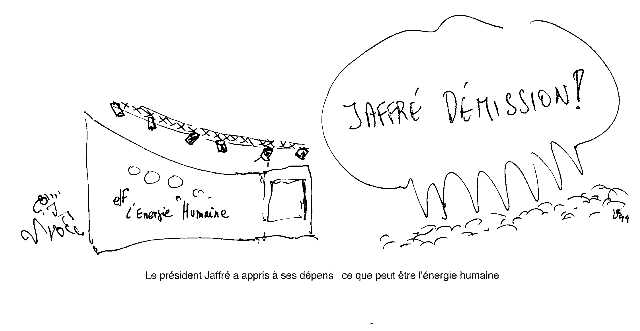 JAFFRÉ DÉMISSION!
elf
L'Energie Humaine
Le président Jaffré a appris à ses dépens ce que peut être l'énergie humaine